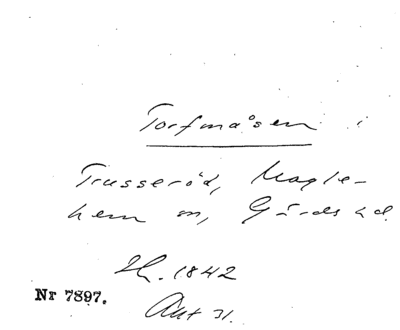 Torfmåsen i
Trusseröd, Magle-
hem sn, Gärds hd.
1842
Nr 7897.
Akt 31.